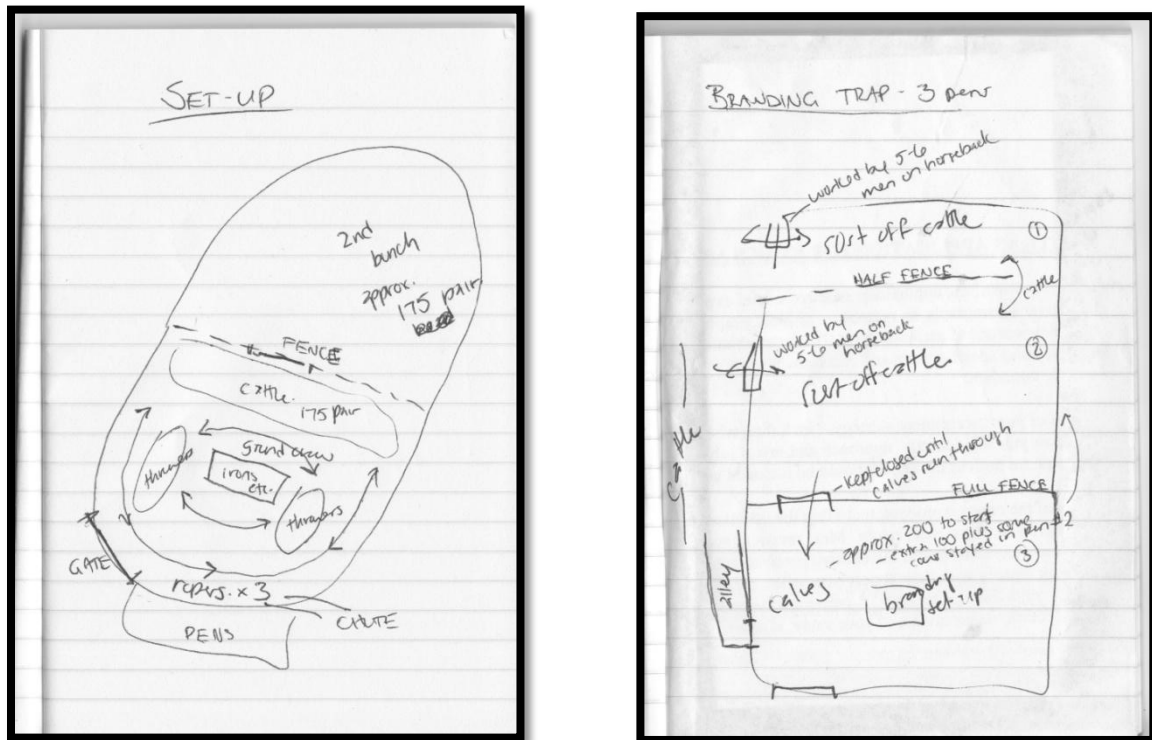 SET-UP
2nd
bunch
approx.
175 pair
FENCE
cattle.
175 pair
ground crew
irons
etc.
throwers
throwers
GATE
ropers. x 3
CHUTE
PENS
BRANDING TRAP - 3 pens
worked by 5-6
men on horseback
sort off cattle
①
HALF FENCE
cattle
worked by
5-6 men on
horseback
②
sort off cattle.
cattle
- kept closed until
calves run through
FULL FENCE
- approx. 200 to start
- extra 100 plus some
cows stayed in pen #2
③
alley
calves
branding
set-up